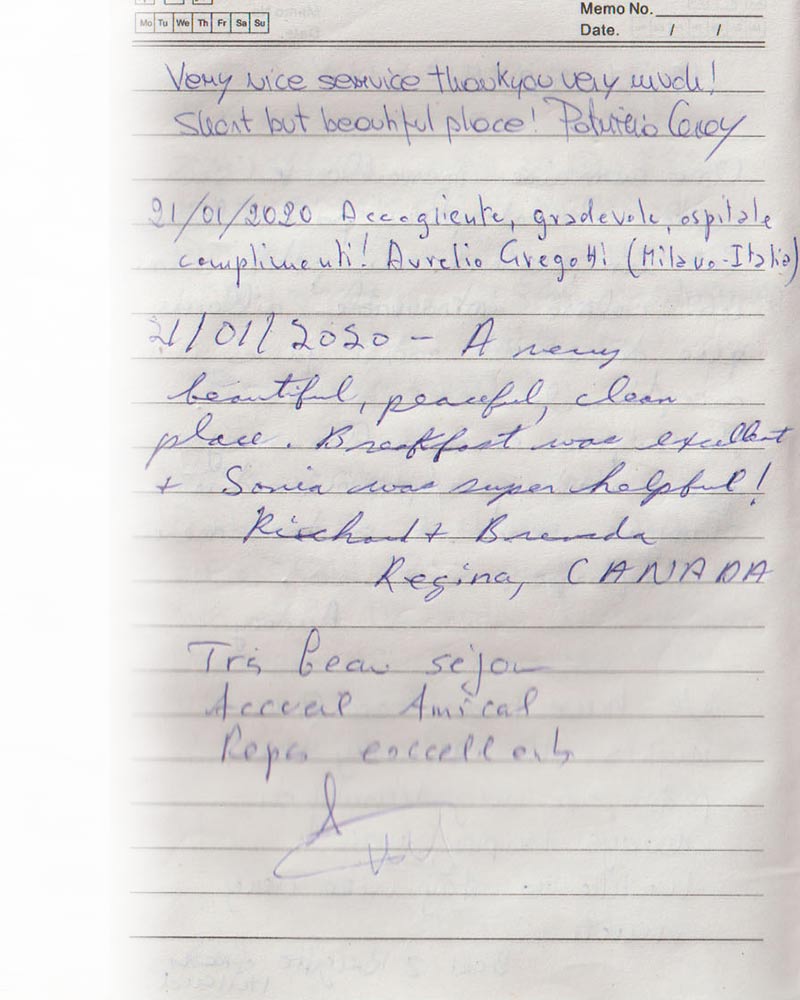 Memo No.
Mo Tu We Th Fr Sa Su
Date. / /
Very nice service thankyou very much!
Short but beautiful place!
21/01/2020 Accogliente, gradevole, ospitale
complimenti! Aurelio Gregotti (Milano-Italia)
21/01/2020 - A very
beautiful, peaceful, clean
place. Breakfast was excellent
+ Sonia was super helpful!
Richard + Brenda
Regina, CANADA
Très beau séjour
Accueil Amical
Repas excellents